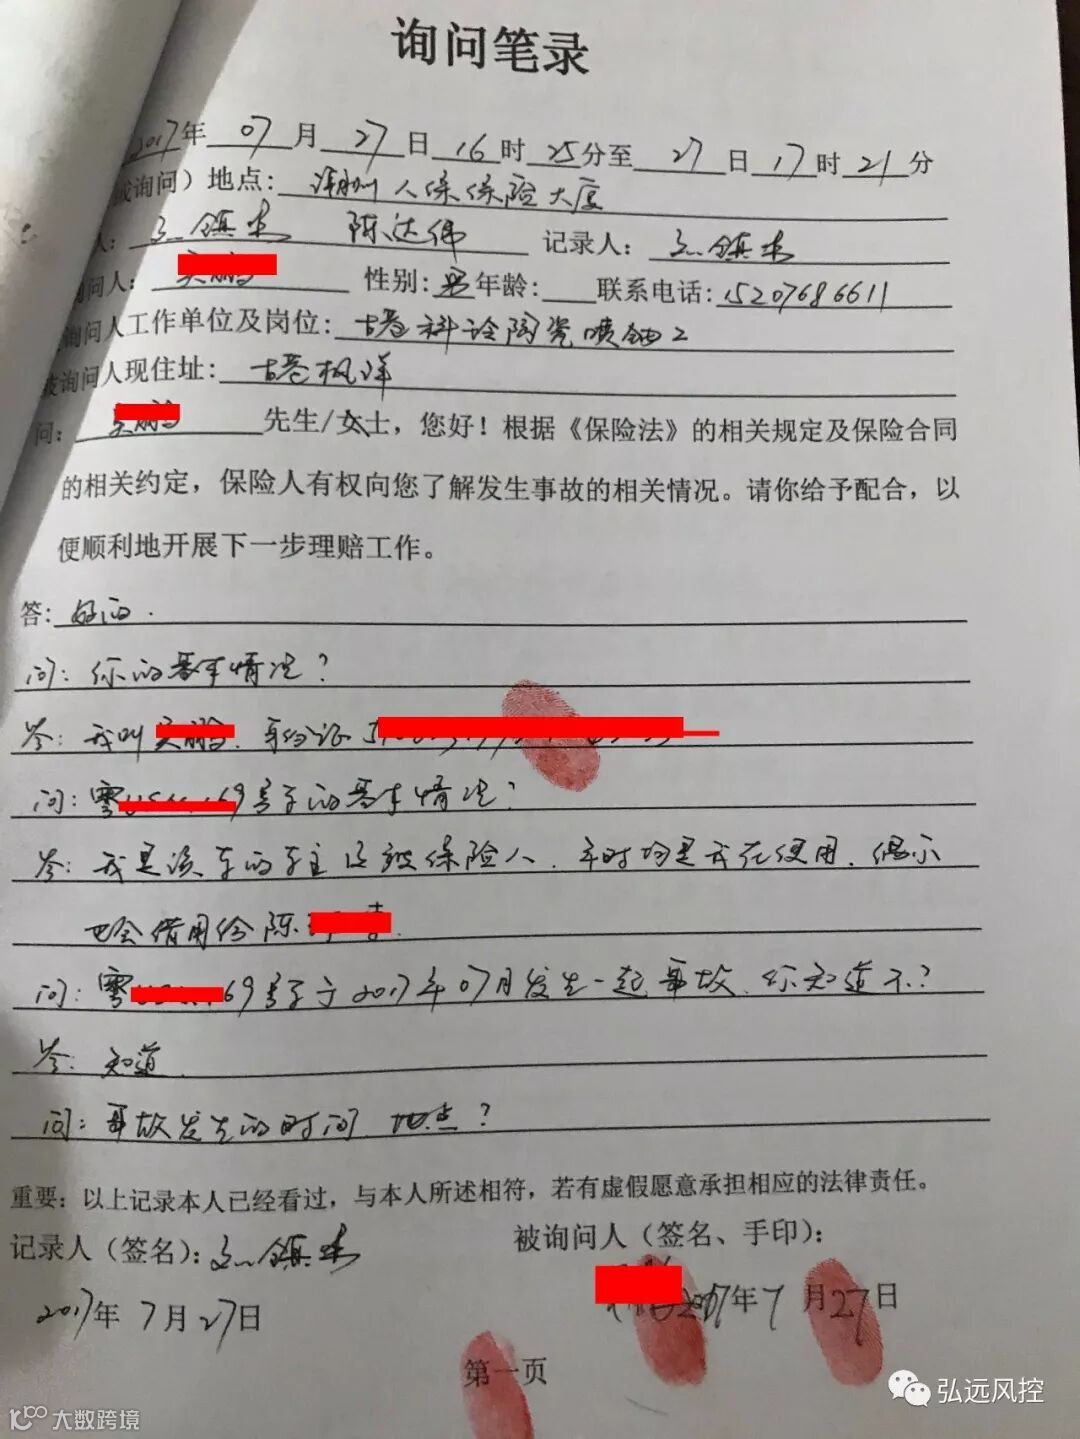 询问笔录
2017年 07 月 27 日 16 时 25 分至 27 日 17 时 21 分
询问）地点： 潮州人保保险大厦
人： 镇 陈达伟 记录人： 镇
询问人： 性别： 男 年龄： 联系电话： 15207686611
询问人工作单位及岗位： 古巷科诠陶瓷喷釉工
被询问人现住址： 古巷枫洋
问： 先生/女士，您好！根据《保险法》的相关规定及保险合同
的相关约定，保险人有权向您了解发生事故的相关情况。请你给予配合，以
便顺利地开展下一步理赔工作。
答： 好的.
问：你的基本情况？
答：我叫 . 身份证
问：粤 69号车的基本情况？
答：我是该车的车主及被保险人，平时均是我在使用，偶尔
也会借用给陈
问：粤 69号车于2017年07月发生一起事故，你知道不？
答：知道.
问：事故发生的时间、地点？
重要：以上记录本人已经看过，与本人所述相符，若有虚假愿意承担相应的法律责任。
记录人（签名）： 镇 被询问人（签名、手印）：
2017年 7月 27日 2017年7月27日
第一页
弘远风控
大数跨境